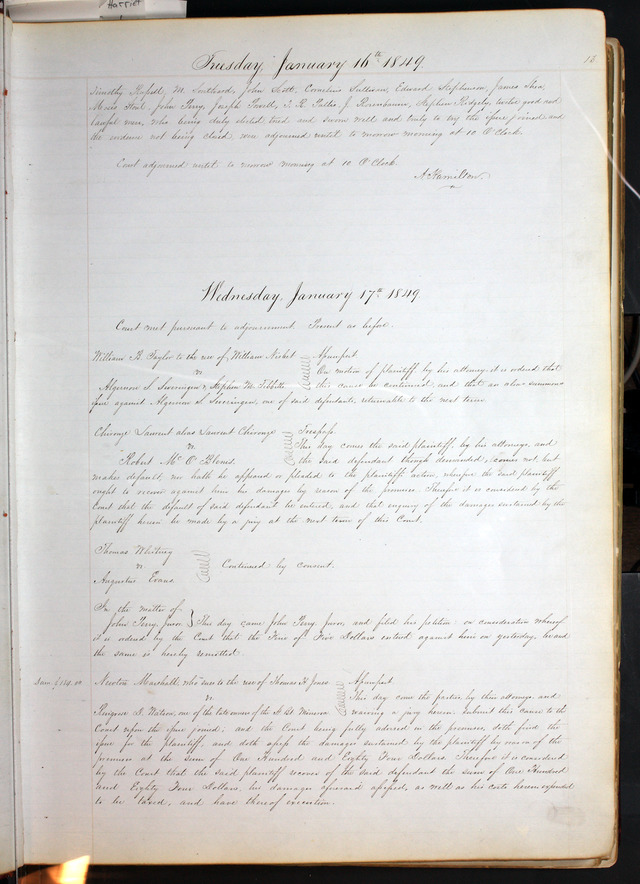 Harriet
Tuesday, January 16th 1849.
13.
Timothy M. Southard, John Scott, Cornelius Sullivan, Edward Stephenson, James Shea
Moses Stout, John Perry, Joseph Powell, J. Stephen Ridgely, twelve good and
lawful men, who being duly elected tried and sworn well and truly to try the issue joined and
the evidence not being closed, were adjourned until to morrow morning at 10 O'Clock.
Court adjourned until to morrow morning at 10 O'Clock.
A. Hamilton.
Wednesday, January 17th 1849
Court met pursuant to adjournment. Present as before.
William B. Taylor to the use of, William Nisbet
vs
Algernon S. & Stephen M. Tibbitts
Assumpsit
On motion of plaintiff by his attorney it is ordered that
this cause be continued, and that an alias summons
issue against Algernon S. one of said defendants, returnable to the next term.
Laurent alias Laurent
vs.
Robert Mc. O. Blenis.
Trespass.
This day comes the said plaintiff, by his attorneys, and
the said defendant though demanded, comes not, but
makes default, nor hath he appeared or pleaded to the plaintiff's action, wherefore the said plaintiff
ought to recover against him his damages by reason of the premises. Therefore it is considered by the
Court that the default of said defendant be entered, and that enquiry of the damages sustained by the
plaintiff herein be made by a jury at the next term of this Court.
Thomas Whitney
vs.
Augustus Evans
Continued by consent.
In the matter of
John Perry, Juror. } This day came John Perry, Juror, and filed his petition: on consideration whereof
it is ordered by the Court that the Fine of Five Dollars entered against him on yesterday, be and
the same is hereby remitted.
Dam. $184.00
Newton Marshall, who sues to the use of Thomas H. Jones
vs.
D. Watson, one of the late owners of the St. Bt. Minerva
Assumpsit
This day come the parties, by their attorneys, and
waiving a jury herein, submit this cause to the
Court upon the issue joined; and the Court being fully advised in the premises, doth find the
issue for the plaintiff, and doth assess the damages sustained by the plaintiff by reason of the
premises at the sum of One Hundred and Eighty Four Dollars. Therefore it is considered
by the Court that the said plaintiff recover of the said defendant the sum of One Hundred
and Eighty Four Dollars, his damages aforesaid assessed, as well as his costs herein expended
to be taxed, and have thereof execution.